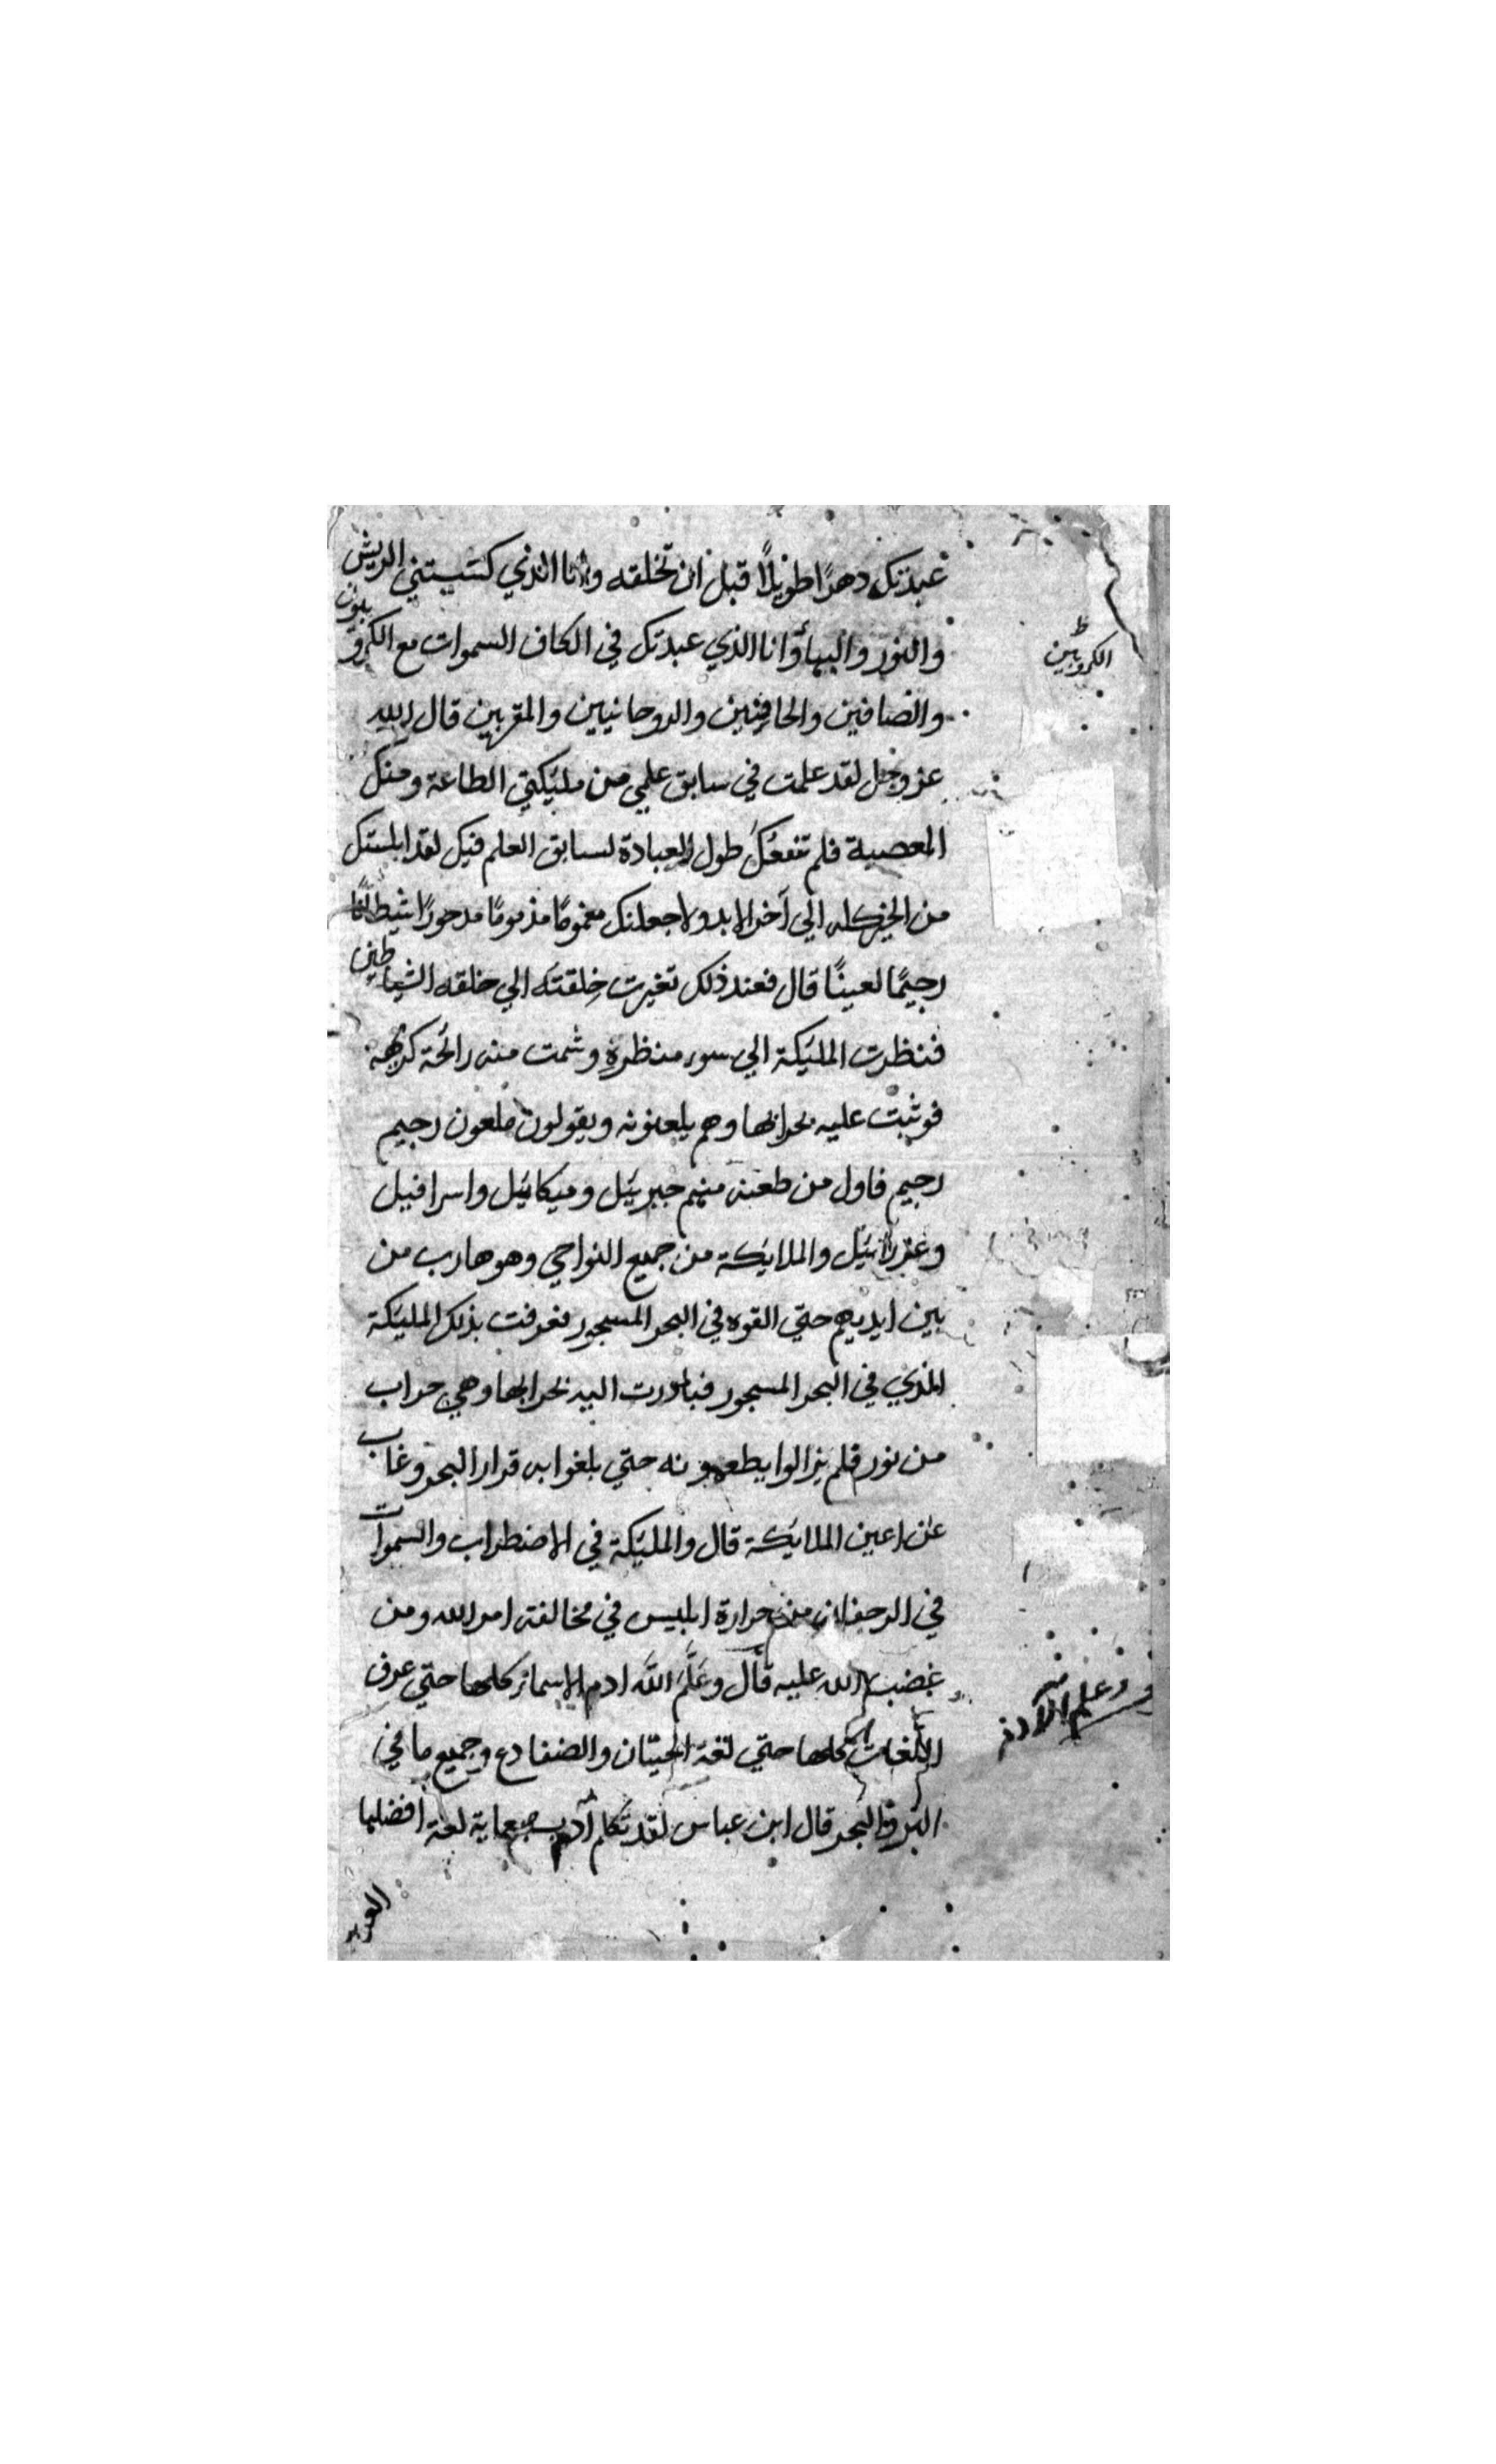 عبدتك دهرًا طويلًا قبل ان تخلقه وانا الذي كسيتني الريش
والنور والبهاء وانا الذي عبدتك في اكناف السموات مع الكروبيون
الكروبين
والصافين والحافين والروحانيين والمقربين قال الله
عز وجل لقد علمت في سابق علمي من مليكتي الطاعة ومنك
المعصية فلم تنفعك طول العبادة لسابق العلم فيك لقد ابلستك
من الخير كله الي آخر الابد ولاجعلنك مغمومًا مذمومًا مدحورًا شيطانًا
رجيمًا لعينًا قال فعند ذلك تغيرت خلقته الي خلقه الشياطين
فنظرت المليكة الي سوء منظره وشمت منه رائحة كريهه
فوثبت عليه بحرابها وهم يلعنونه ويقولون ملعون رجيم
رجيم فاول من طعنه منهم جبريئل وميكائيل واسرافيل
وعزرائيل والملايكة من جميع النواحي وهو هارب من
بين ايديهم حتي القوه في البحر المسجور فعرفت بذلك المليكة
الذي في البحر المسجور فبادرت اليه بحرابها وهي حراب
من نور فلم يزالوا يطعنونه حتي بلغوا به قرار البحر وغاب
عن اعين الملايكة قال والمليكة في الاضطراب والسموات
في الرجفان من حرارة ابليس في مخالفته امر الله ومن
غضب الله عليه قال وعَلَّمَ اللَّه ادم الاسماء كلها حتي عرف
اللغات كلها حتي لغة الحيتان والضفادع وجميع ما في
البر والبحر قال ابن عباس لقد تكلم آدم بسبعماية لغة افضلها
العربـ